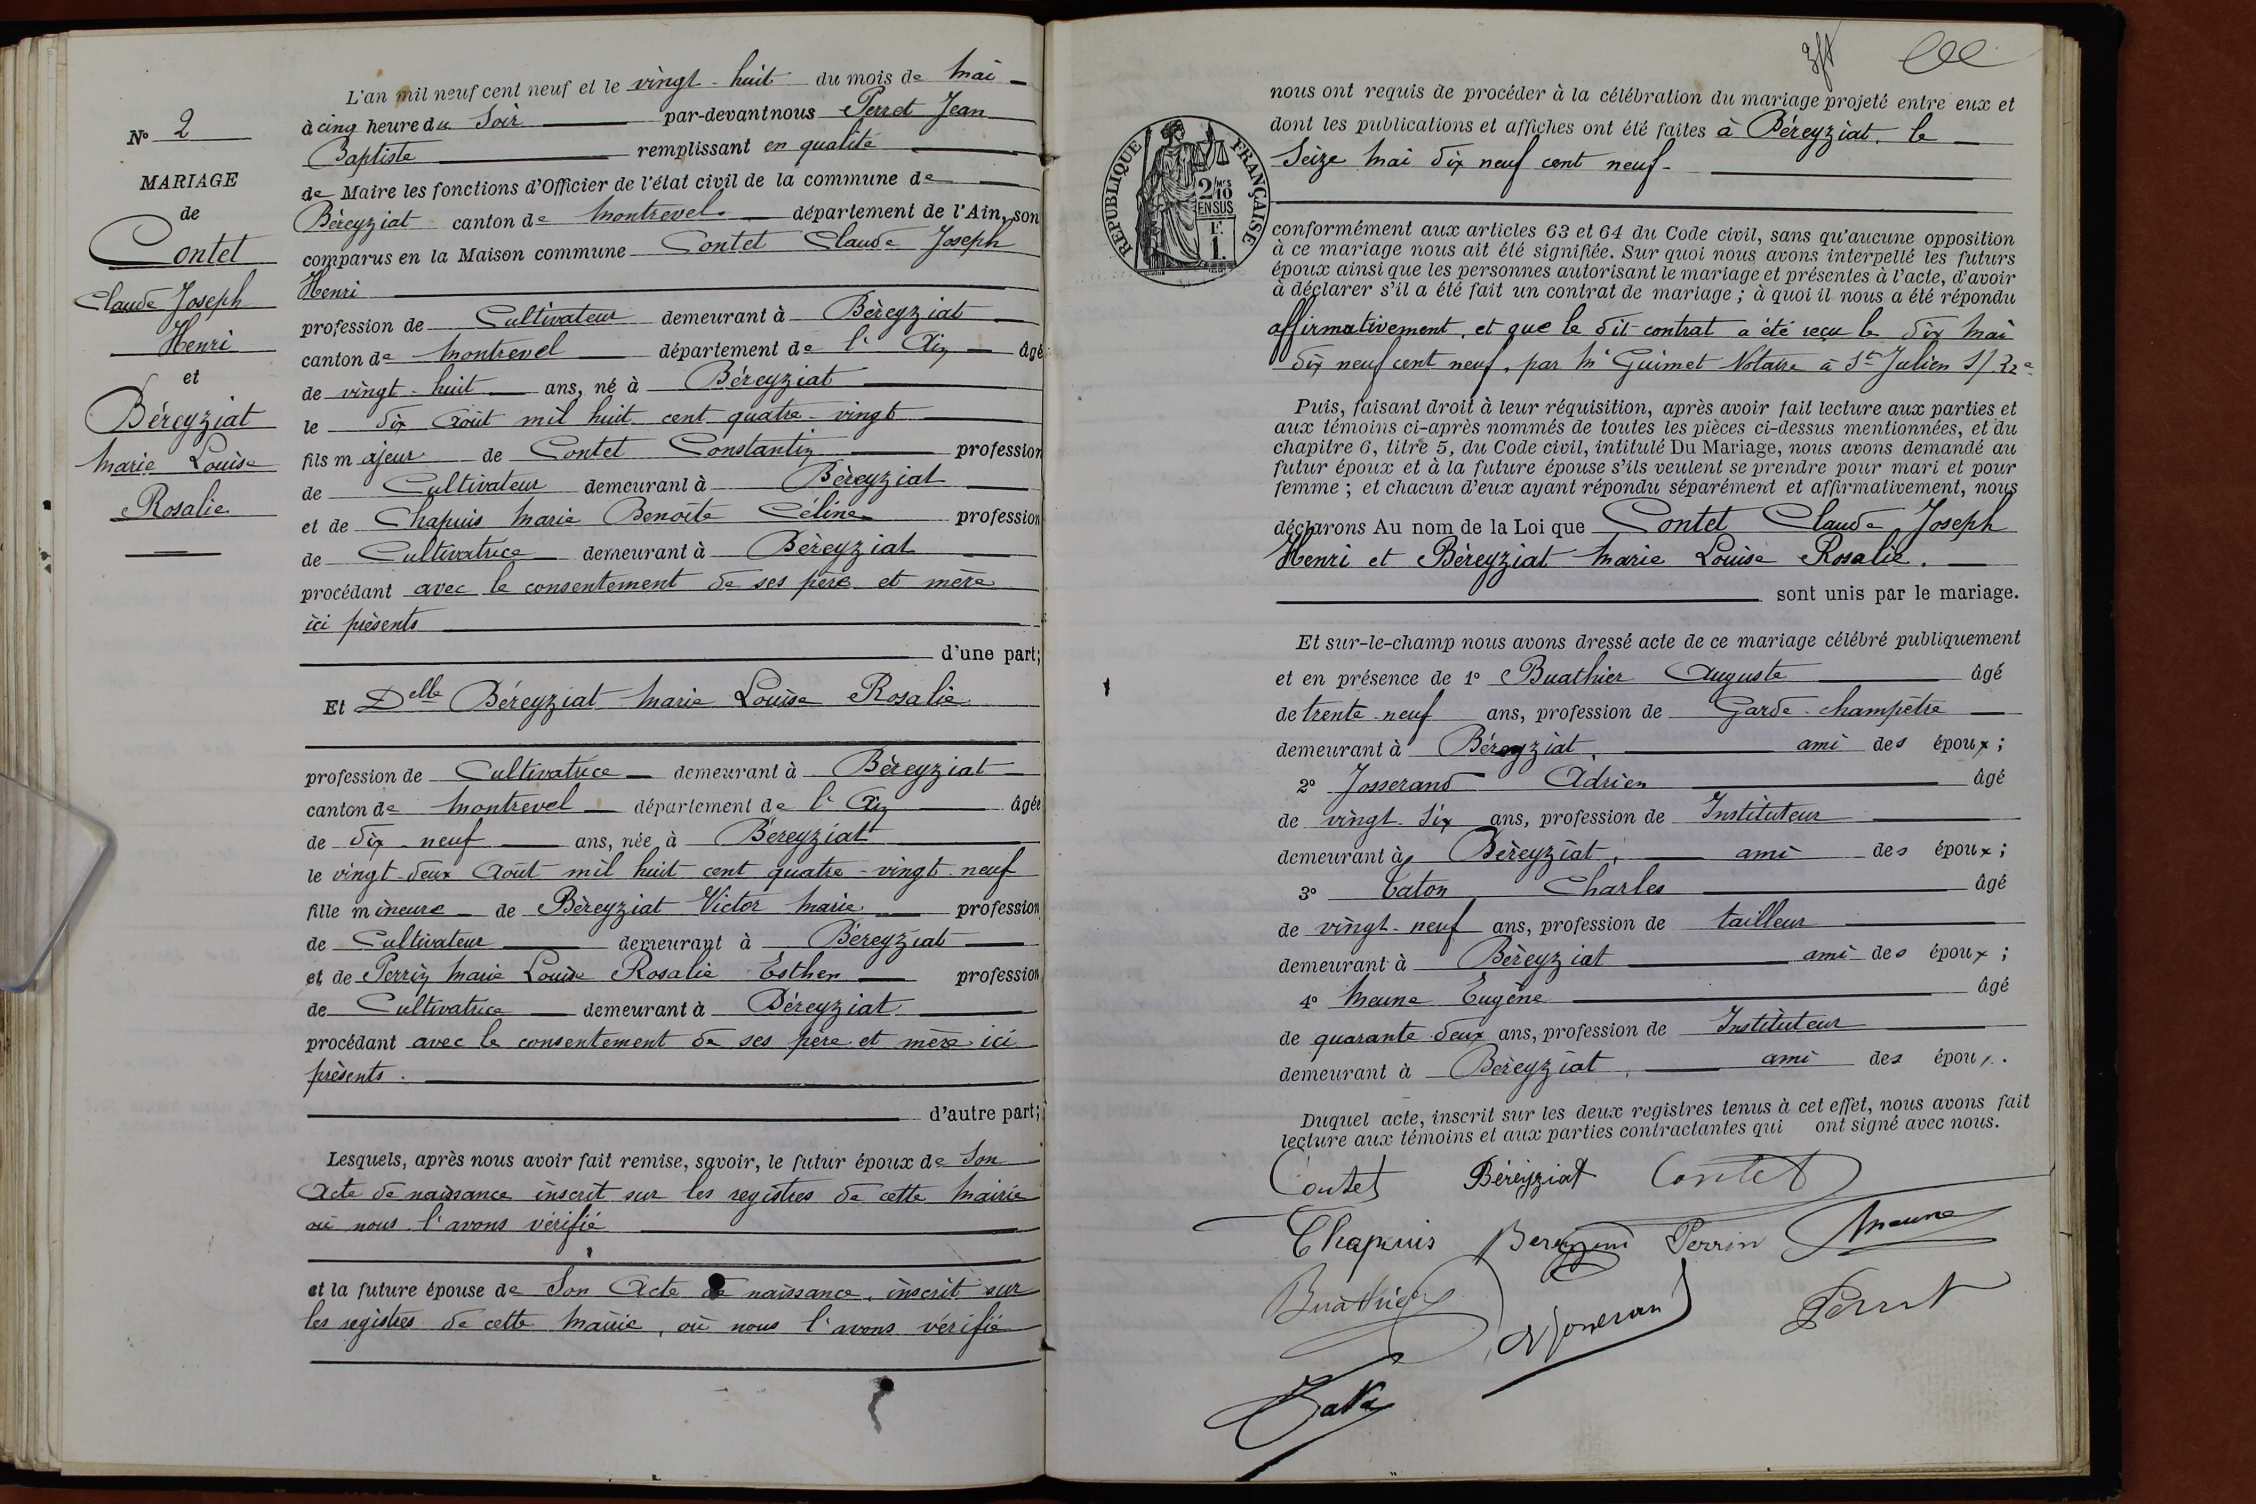 N° 2
MARIAGE
de
Contet
Claude Joseph
Henri
et
Béreyziat
Marie Louise
Rosalie
L'an mil neuf cent neuf et le vingt-huit du mois de Mai
à cinq heure du Soir par-devant nous Perret Jean
Baptiste remplissant en qualité
de Maire les fonctions d'Officier de l'état civil de la commune de
Béreyziat canton de Montrevel département de l'Ain, son
comparus en la Maison commune Contet Claude Joseph
Henri
profession de Cultivateur demeurant à Béreyziat
canton de Montrevel département de l'Ain âgé
de vingt-huit ans, né à Béreyziat
le dix Août mil huit cent quatre-vingt
fils majeur de Contet Constantin profession
de Cultivateur demeurant à Béreyziat
et de Chapuis Marie Benoite Céline profession
de Cultivatrice demeurant à Béreyziat
procédant avec le consentement de ses père et mère
ici présents
d'une part;
Et Delle Béreyziat Marie Louise Rosalie
profession de Cultivatrice demeurant à Béreyziat
canton de Montrevel département de l'Ain âgée
de dix-neuf ans, née à Béreyziat
le vingt-deux Août mil huit cent quatre-vingt neuf
fille mineure de Béreyziat Victor Marie profession
de Cultivateur demeurant à Béreyziat
et de Perrin Marie Louise Rosalie Esther profession
de Cultivatrice demeurant à Béreyziat
procédant avec le consentement de ses père et mère ici
présents.
d'autre part;
Lesquels, après nous avoir fait remise, savoir, le futur époux de Son
Acte de naissance inscrit sur les registres de cette Mairie
où nous l'avons vérifié
et la future épouse de Son Acte de naissance, inscrit sur
les registres de cette Mairie, où nous l'avons vérifié
RÉPUBLIQUE FRANÇAISE
2/10
EN SUS
F.
1.
nous ont requis de procéder à la célébration du mariage projeté entre eux et
dont les publications et affiches ont été faites à Béreyziat, le
Seize Mai dix neuf cent neuf-
conformément aux articles 63 et 64 du Code civil, sans qu'aucune opposition
à ce mariage nous ait été signifiée. Sur quoi nous avons interpellé les futurs
époux ainsi que les personnes autorisant le mariage et présentes à l'acte, d'avoir
à déclarer s'il a été fait un contrat de mariage; à quoi il nous a été répondu
affirmativement, et que le dit contrat a été reçu le dix Mai
dix neuf cent neuf, par Me Guimet Notaire à St Julien s/ Rze
Puis, faisant droit à leur réquisition, après avoir fait lecture aux parties et
aux témoins ci-après nommés de toutes les pièces ci-dessus mentionnées, et du
chapitre 6, titre 5, du Code civil, intitulé Du Mariage, nous avons demandé au
futur époux et à la future épouse s'ils veulent se prendre pour mari et pour
femme; et chacun d'eux ayant répondu séparément et affirmativement, nous
déclarons Au nom de la Loi que Contet Claude Joseph
Henri et Béreyziat Marie Louise Rosalie.
sont unis par le mariage.
Et sur-le-champ nous avons dressé acte de ce mariage célébré publiquement
et en présence de 1° Buathier Auguste âgé
de trente-neuf ans, profession de Garde-champêtre
demeurant à Béreyziat, ami des époux;
2° Josserand Adrien âgé
de vingt-six ans, profession de Instituteur
demeurant à Béreyziat, ami des époux;
3° Taton Charles âgé
de vingt-neuf ans, profession de tailleur
demeurant à Béreyziat ami des époux;
4° Meune Eugène âgé
de quarante deux ans, profession de Instituteur
demeurant à Béreyziat, ami des époux.
Duquel acte, inscrit sur les deux registres tenus à cet effet, nous avons fait
lecture aux témoins et aux parties contractantes qui ont signé avec nous.
Contet Béreyziat Contet
Chapuis Perrin Meune
Buathier Perret